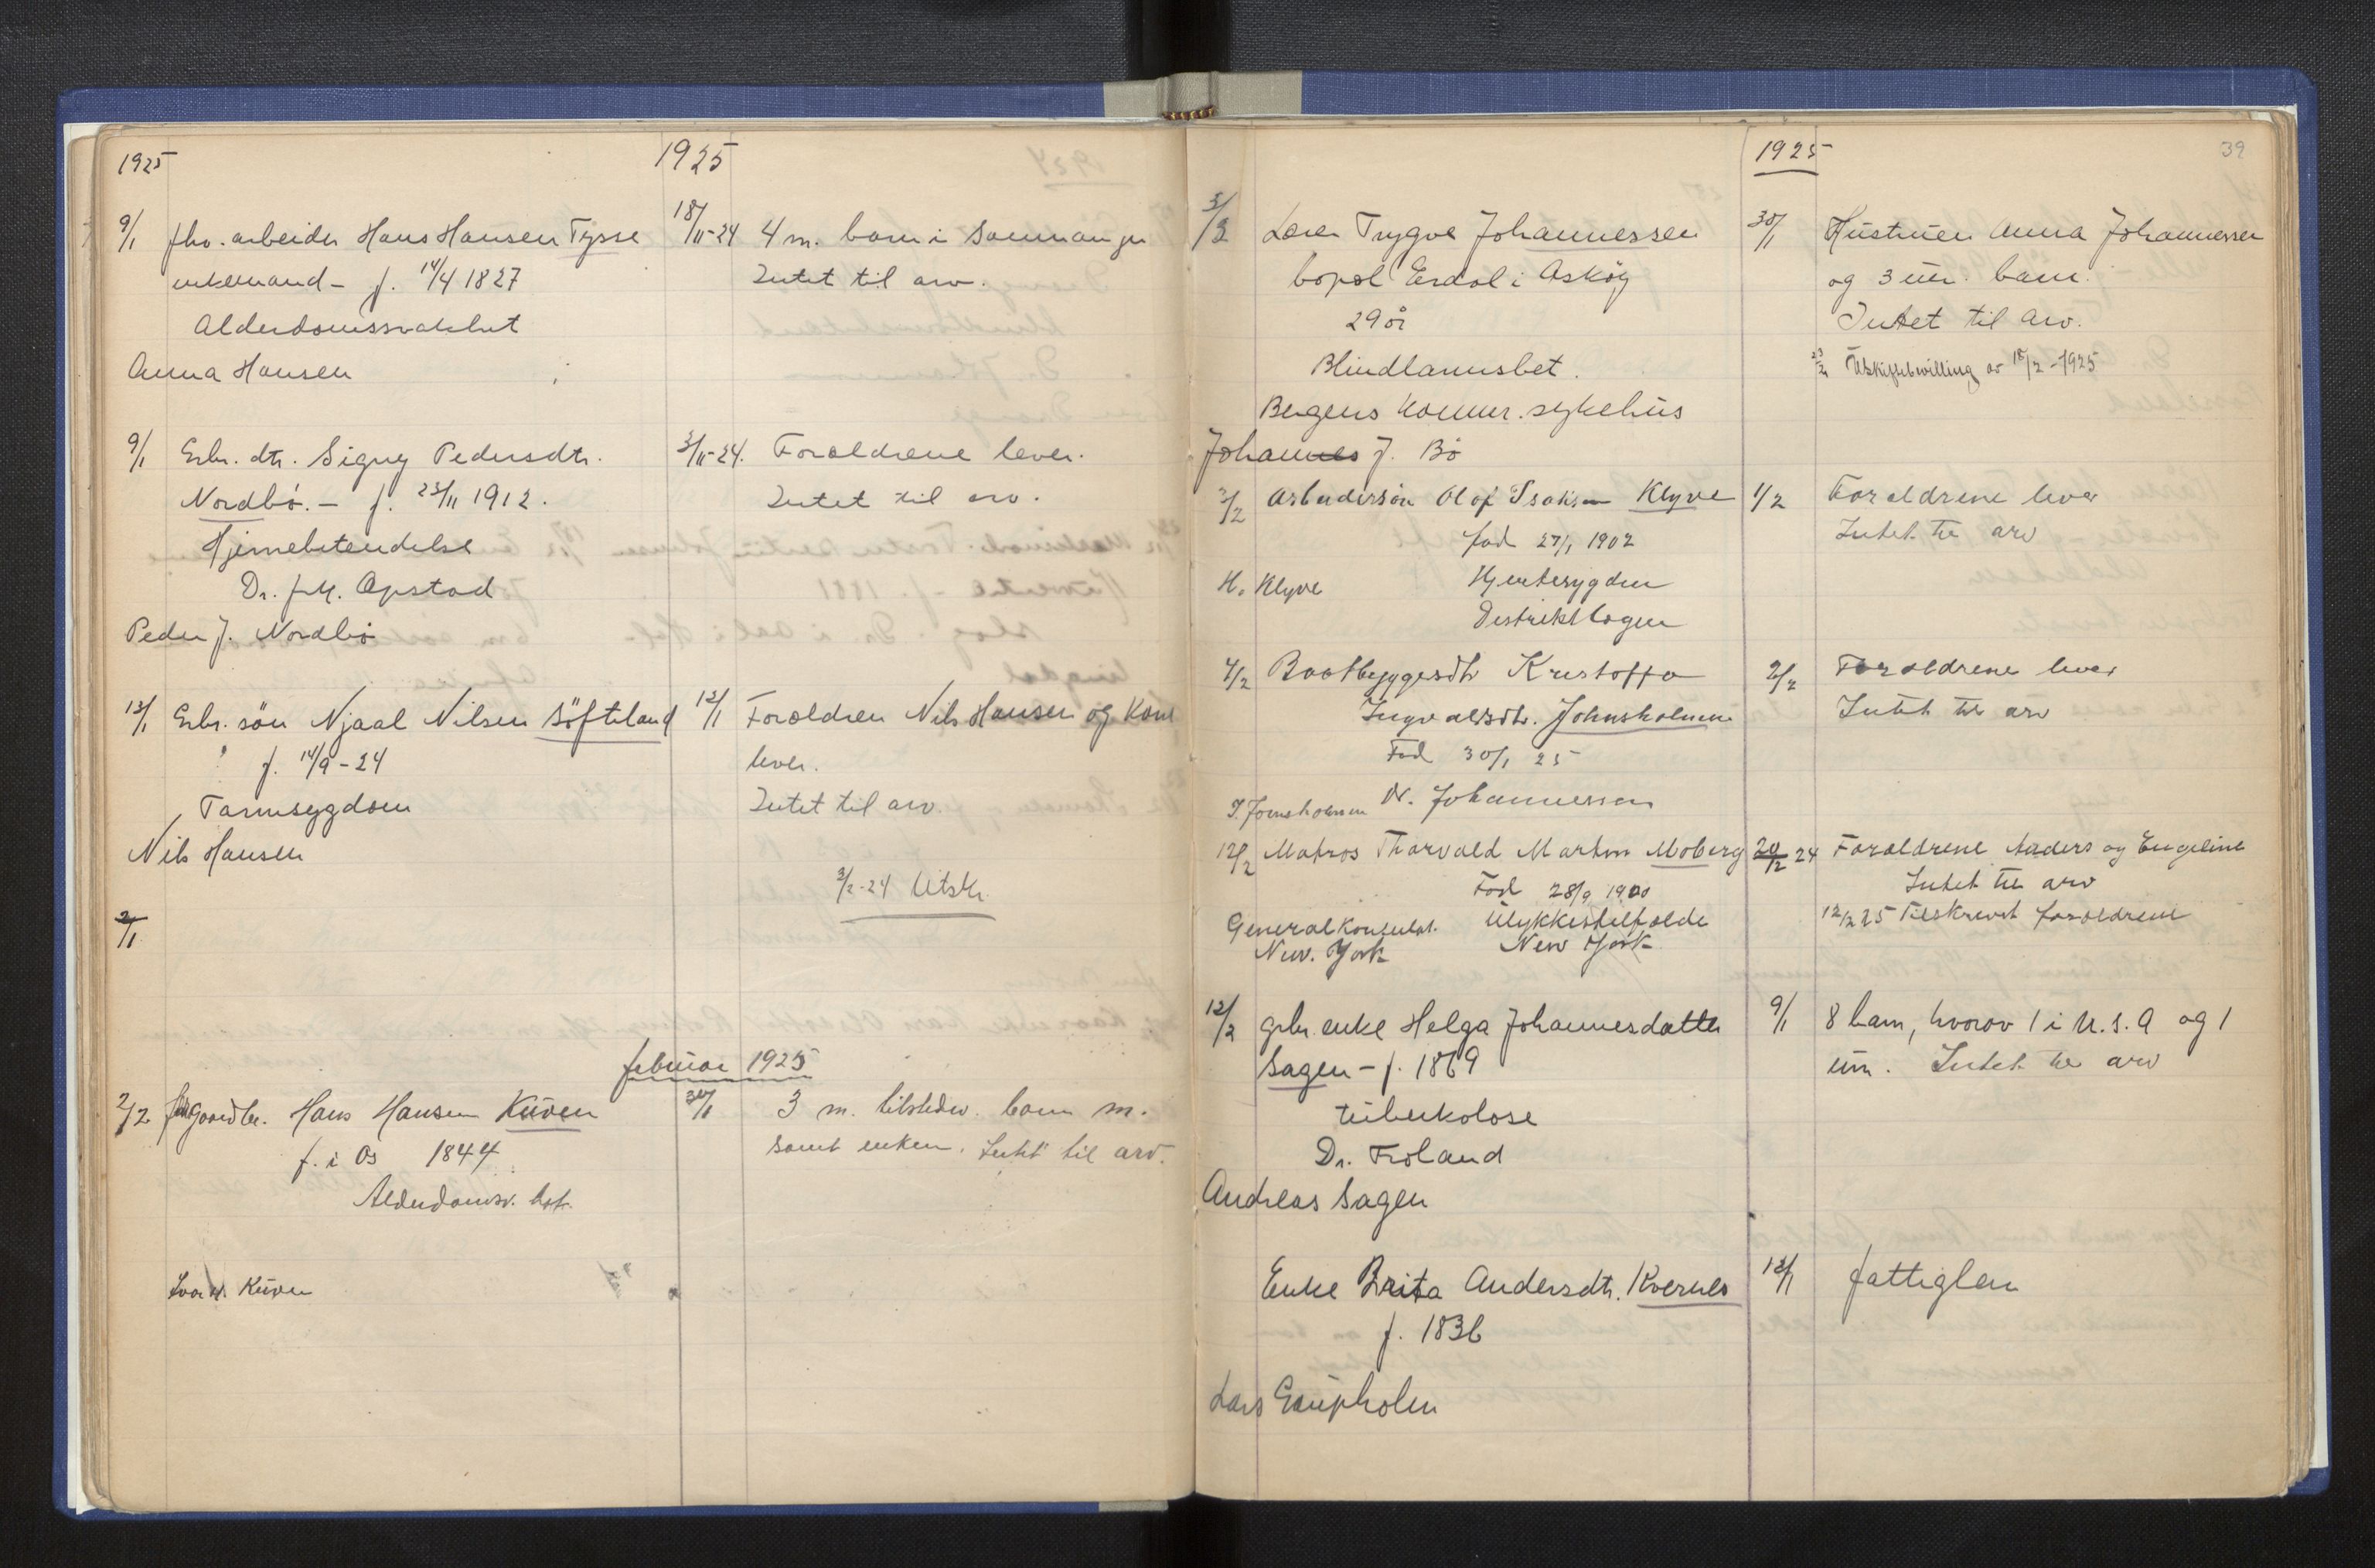 1925
1925
9/1 fhv. arbeider Hans Hansen Tysse 18/11-24 4 m. barn i Samnanger
enkemand - f. 14/4 1827 Intet til arv.
Alderdomssvakhet
Anna Hansen
9/1 Gbr. dtr. Signy Pedersdtr. 3/11-24. Forældrene lever.
Nordbö. - f. 23/11 1912. Intet til arv.
Hjernebetendelse
Dr. Opstad
Peder J. Nordbö
13/1 Gbr. sön Njaal Nilsen Söfteland 12/1 Forældren Nils Hansen og Kone
f. 14/9-24 lever.
Tarmsygdom Intet til arv.
Nils Hansen
3/2-24 Utskr.
2/1
februar 1925
2/2 Gaardbr. Hans Hansen Kuven 30/1 3 m. tilstedev. barn m.
f. i Os 1844 samt enken. Intet til arv.
Alderdomsv. het.
Kuven
1925
39
3/2 Trygve Johannessen 30/1 Hustruen Anna Johannessen
bopæl Erdal i Asköy og 3 um. barn.
29 år Intet til arv.
Blindtarmsbet. Uskiftebevilling av 18/2-1925
Bergens Kommr. sykehus
Johannes J. Bö
3/2 Arbeidersön Olaf Isaksen Klyve 1/2 Forældrene lever
fød 27/1 1902 Intet til arv
H. Klyve Hjertesygdom
Distriktslægen
4/2 Baatbyggerdtr Kristoffa 2/2 Forældrene lever
Ingvaldsdtr. Johnsholmen Intet til arv
Fød 30/1 25
Dr. Johannessen
12/2 Matros Thorvald Martin Moberg 20/12 24 Forældrene Anders og Engeline
Fød 28/9 1900 Intet til arv
Generalkonsulat. Ulykkestilfælde 12/2 25 Tilskrevet forældrene
New. York New York
12/2 gbr. enke Helga Johannesdatter 9/1 8 barn, hvorav 1 i U.S.A og 1
Sagen - f. 1869 um. Intet til arv
tuberkolose
Dr. Froland
Andreas Sagen
Enke Brita Andersdtr. Kvernes 12/1 fattiglem
f. 1836
Lars Gaupholm